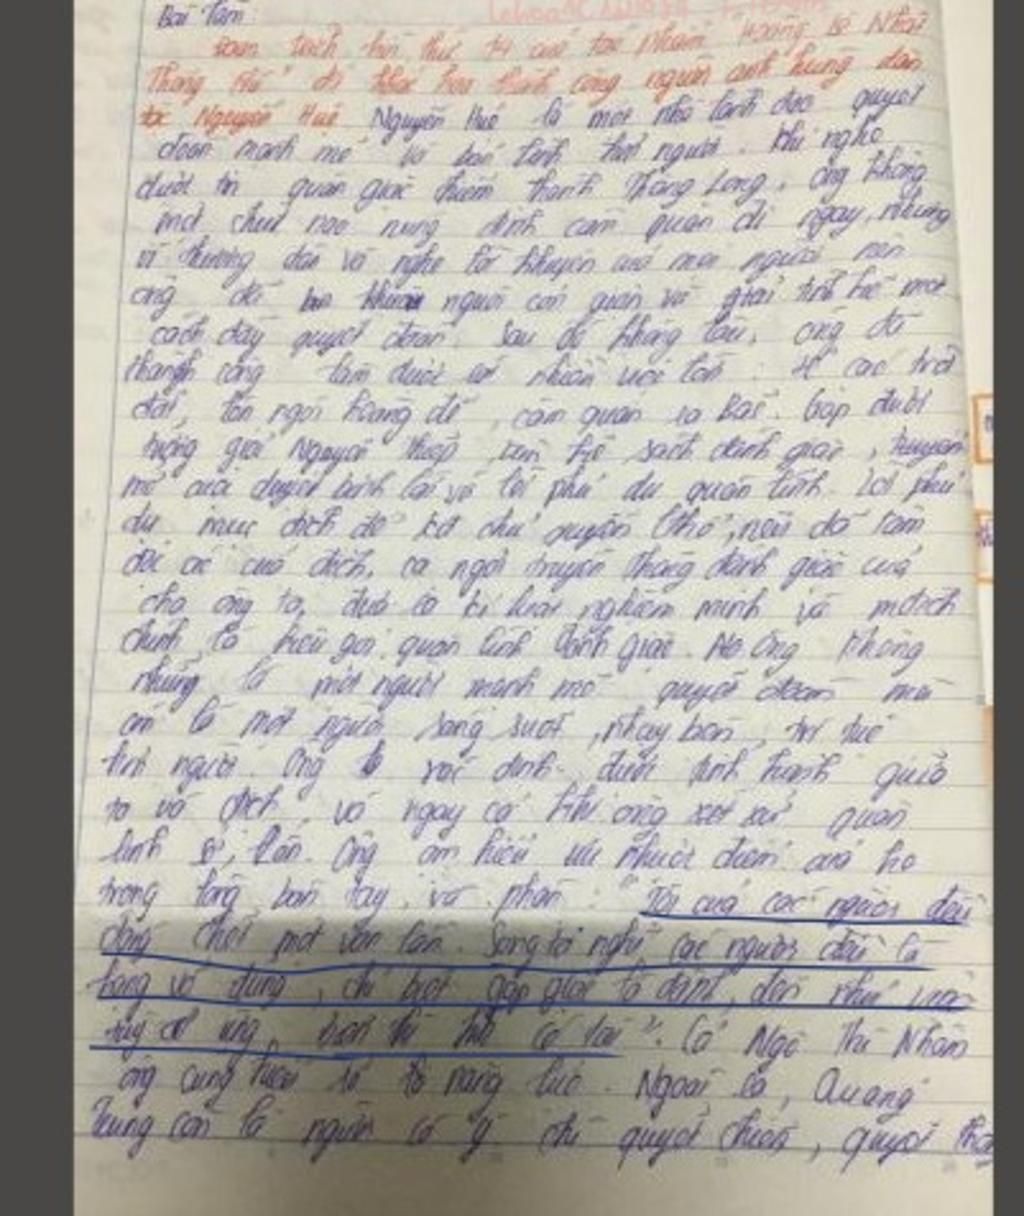 Bài làm
đoạn trích hồi thứ 14 của tác phẩm Hoàng lê Nhất
Thống chí đã khắc họa thành công người anh hùng dân
tộc Nguyễn Huệ Nguyễn Huệ là một nhà lãnh đạo quyết
đoán mạnh mẽ và bản lĩnh hơn người. Khi nghe
được tin quân giặc chiếm thành Thăng Long, ông không
một chút nao núng định cầm quân đi ngay, nhưng
vì thương dân và nghe lời khuyên của mọi người nên
ông đã người quân và
cách đầy quyết đoán. Sau đó không lâu, ông đã
thành công làm được nhiều việc lớn: tế cáo trời
đất, lên ngôi hoàng đế, cầm quân ra Bắc. Gặp
Nguyễn Thiếp kế sách đánh giặc, tuyển
mộ duyệt binh lại và lời phủ dụ quân lính. Lời phủ
dụ mục đích để chủ quyền nêu dã tâm
độc ác của địch, ca ngợi truyền thống đánh giặc của
cha ông ta, đưa ra kỉ luật nghiêm minh và
chính là kêu gọi quân lính đánh giặc. Ông không
những là một người mạnh mẽ quyết đoán mà
còn là một người sáng suốt, nhạy bén, trí tuệ
hơn người. Ông xác định được tình hình giữa
ta và địch, và ngay cả khi ông xét xử quân
lính Sở, Lân. Ông am hiểu ưu nhược điểm của họ
trong lòng bàn tay và phán: "Tội của các ngươi đều
đáng chết một vạn lần. Song ta nghĩ, các ngươi đều là
hạng võ dũng, chỉ biết gặp giặc là đánh, đến như việc
tùy cơ ứng biến thì không có tài". Cả Ngô Thì Nhậm
ông cũng hiểu rõ năng lực. Ngoài ra, Quang
Trung còn là người có ý chí quyết chiến, quyết